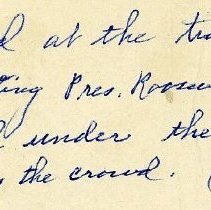 d at the tr
ting Pres. Roosev
d under the
s the crowd.